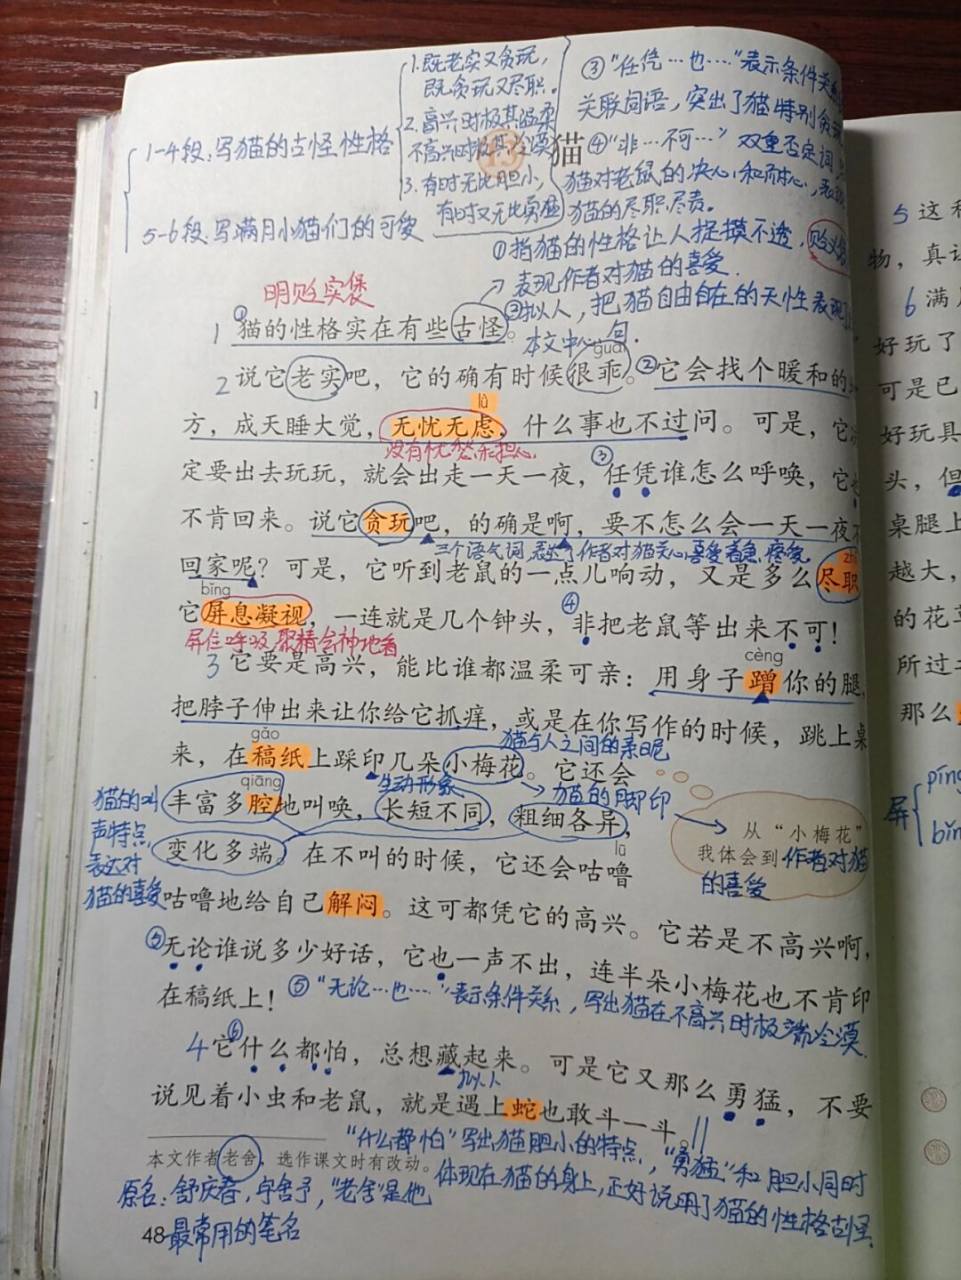 1-4段:写猫的古怪性格
1.既老实又贪玩,
既贪玩又尽职。
2.高兴时极其温柔
不高兴时极其冷漠
3.有时无比胆小,
有时又无比勇猛
5-6段:写满月小猫们的可爱
③"任凭…也…"表示条件关系
关联词语,突出了猫特别贪玩
13 猫
④"非…不可…"双重否定词,
猫对老鼠的决心和耐心,表
猫的尽职尽责。
①指猫的性格让人捉摸不透,
表现作者对猫的喜爱.
贬义
明贬实褒
②拟人,把猫自由自在的天性表现
本文中心句.
1 ①猫的性格实在有些古怪。
guāi
2 说它老实吧,它的确有时候很乖。②它会找个暖和的
lǜ
方,成天睡大觉,无忧无虑,什么事也不过问。可是,它
没有忧愁和担心.
定要出去玩玩,就会出走一天一夜,③任凭谁怎么呼唤,它
不肯回来。说它贪玩吧,的确是啊,要不怎么会一天一夜不
三个语气词表达了作者对猫关心喜爱着急疼爱
回家呢?可是,它听到老鼠的一点儿响动,又是多么尽职
bǐng
它屏息凝视,一连就是几个钟头,④非把老鼠等出来不可!
屏住呼吸 聚精会神地看
cèng
3 它要是高兴,能比谁都温柔可亲:用身子蹭你的腿,
把脖子伸出来让你给它抓痒,或是在你写作的时候,跳上桌
gǎo
猫与人之间的亲昵
来,在稿纸上踩印几朵小梅花。它还会
qiāng
生动形象
猫的脚印
猫的叫
声特点,
表达对
猫的喜爱
丰富多腔地叫唤,长短不同,粗细各异,
lū
变化多端。在不叫的时候,它还会咕噜
从“小梅花”
我体会到作者对猫
的喜爱
咕噜地给自己解闷。这可都凭它的高兴。它若是不高兴啊,
⑤无论谁说多少好话,它也一声不出,连半朵小梅花也不肯印
在稿纸上!
⑤"无论…也…"表示条件关系,写出猫在不高兴时极端冷漠.
4 它⑥什么都怕,总想藏起来。可是它又那么勇猛,不要
拟人
说见着小虫和老鼠,就是遇上蛇也敢斗一斗。
"什么都怕"写出猫胆小的特点,"勇猛"和胆小同时
体现在猫的身上,正好说明了猫的性格古怪.
本文作者老舍,选作课文时有改动。
原名:舒庆春,字舍予,"老舍"是他
最常用的笔名
48
5 这种
物,真让
6 满月
好玩了
可是已
好玩具
头,但
桌腿上
越大,
的花草
所过之
那么
屏
píng
bǐng